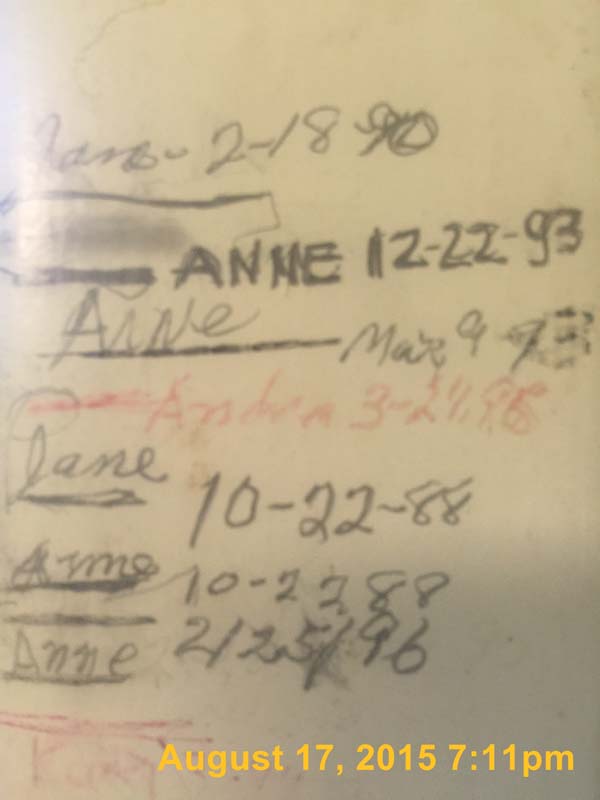 Jane - 2-18 90
ANNE 12-22-93
Anne
Mar 9
Andrea 3-27-98
Jane
10-22-88
Anne 10-22 88
Anne 2/25/96
August 17, 2015 7:11pm